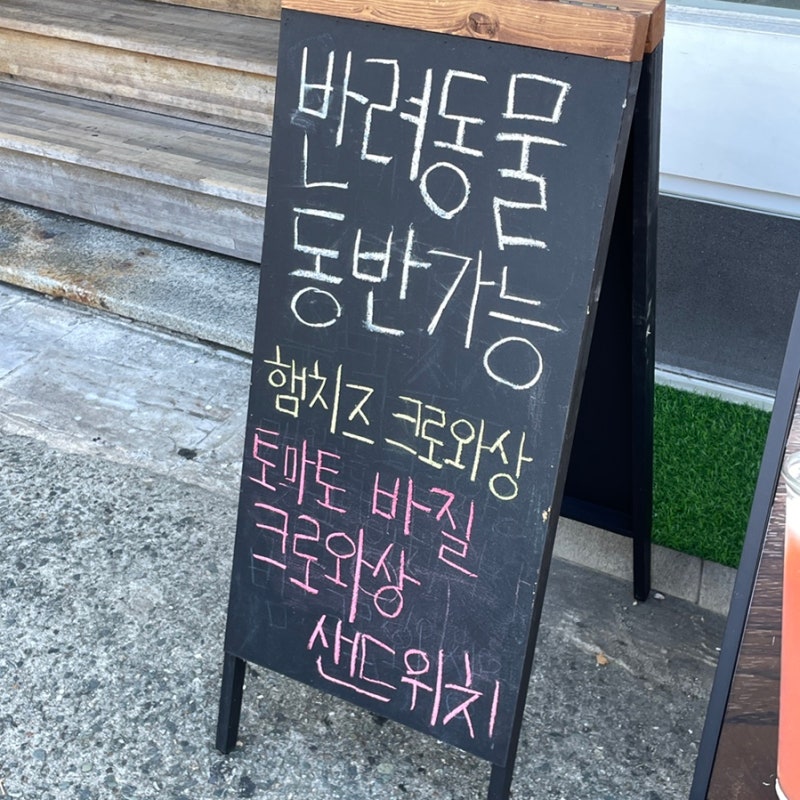 반려동물
동반가능
햄치즈 크로와상
토마토 바질
크로와상
샌드위치